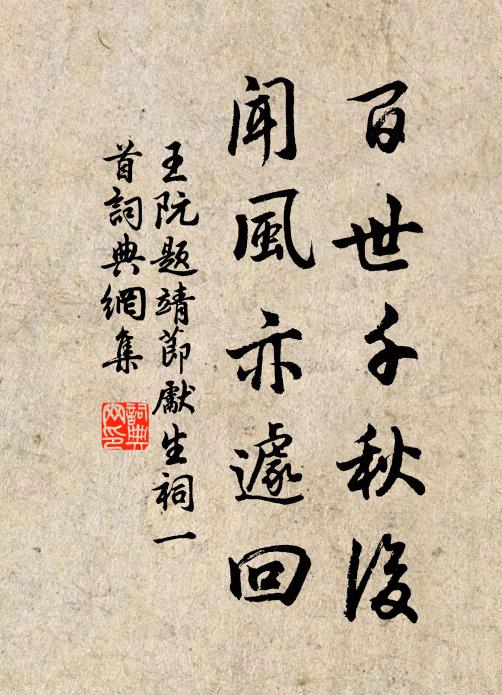 百世千秋後
聞風亦遽回
王阮題靖節獻生祠一
首詞典網集
詞典
网印